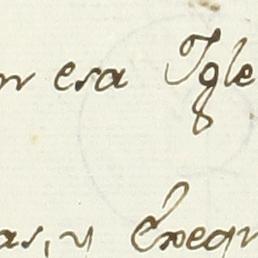 n esa Igle
as, y Exequ